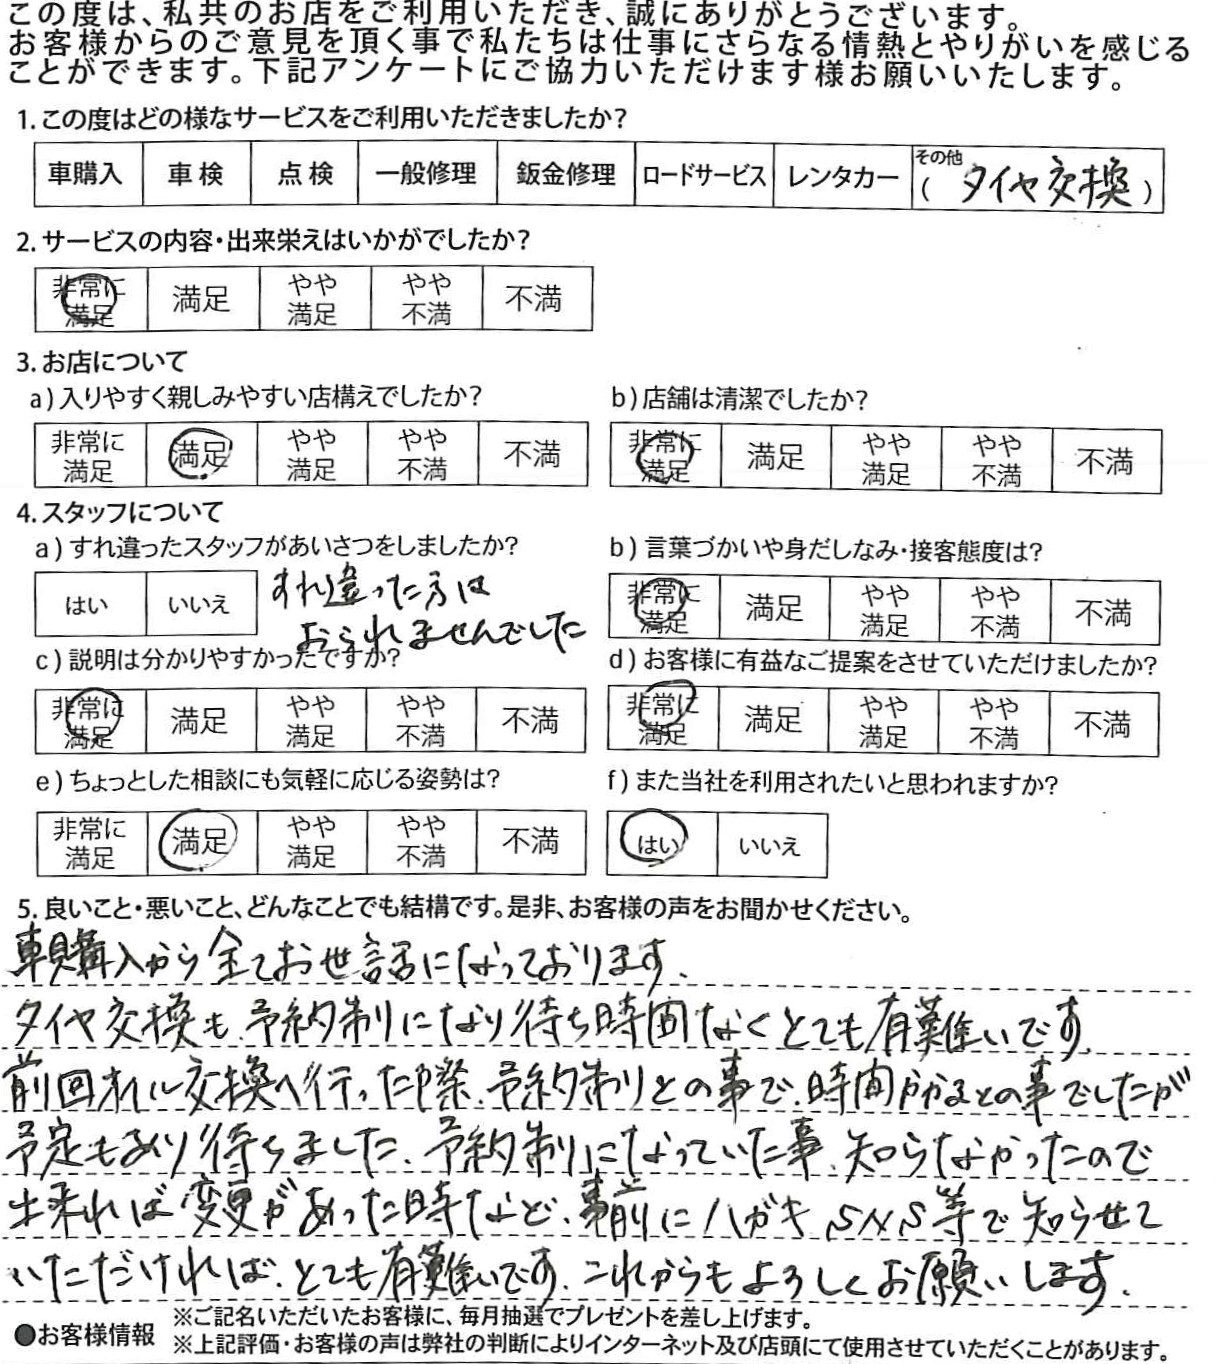 この度は、私共のお店をご利用いただき、誠にありがとうございます。
お客様からのご意見を頂く事で私たちは仕事にさらなる情熱とやりがいを感じる
ことができます。下記アンケートにご協力いただけます様お願いいたします。
1. この度はどの様なサービスをご利用いただきましたか?
車購入 車検 点検 一般修理 鈑金修理 ロードサービス レンタカー その他 (タイヤ交換)
2. サービスの内容・出来栄えはいかがでしたか?
非常に満足 満足 やや満足 やや不満 不満
3. お店について
a) 入りやすく親しみやすい店構えでしたか?
非常に満足 満足 やや満足 やや不満 不満
b) 店舗は清潔でしたか?
非常に満足 満足 やや満足 やや不満 不満
4. スタッフについて
a) すれ違ったスタッフがあいさつをしましたか?
はい いいえ
すれ違った方は
おられませんでした
b) 言葉づかいや身だしなみ・接客態度は?
非常に満足 満足 やや満足 やや不満 不満
c) 説明は分かりやすかったですか?
非常に満足 満足 やや満足 やや不満 不満
d) お客様に有益なご提案をさせていただけましたか?
非常に満足 満足 やや満足 やや不満 不満
e) ちょっとした相談にも気軽に応じる姿勢は?
非常に満足 満足 やや満足 やや不満 不満
f) また当社を利用されたいと思われますか?
はい いいえ
5. 良いこと・悪いこと、どんなことでも結構です。是非、お客様の声をお聞かせください。
車購入から全てお世話になっております。
タイヤ交換も、予約制になり待ち時間なくとても有難いです。
前回オイル交換へ行った際、予約制との事で、時間かかるとの事でしたが
予定もあり待ちました、予約制になっていた事、知らなかったので
出来れば変更があった時など、事前にハガキ、SNS等で知らせて
いただければ、とても有難いです、これからもよろしくお願いします。
●お客様情報
※ご記名いただいたお客様に、毎月抽選でプレゼントを差し上げます。
※上記評価・お客様の声は弊社の判断によりインターネット及び店頭にて使用させていただくことがあります。